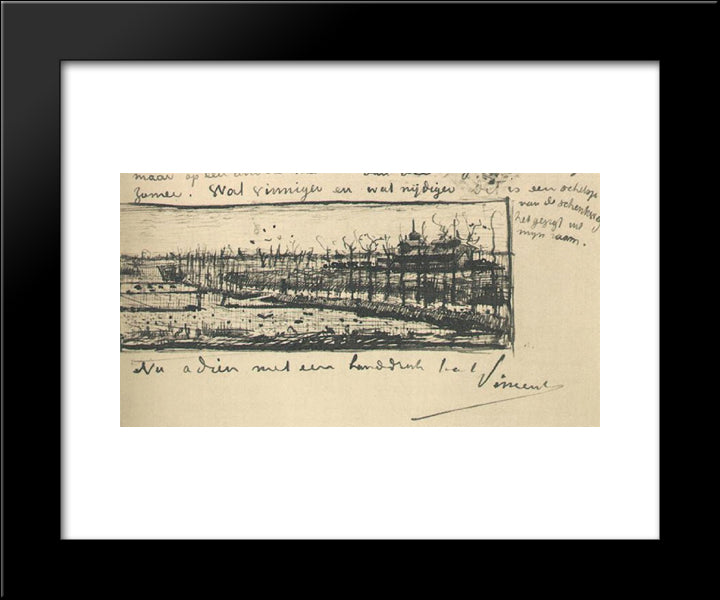 maar op een
zomer. Wat vinniger en wat nijdiger Dit is een
van de schenkweg
het gezigt uit
mijn raam.
Nu adieu met een handdruk t.à.t. Vincent